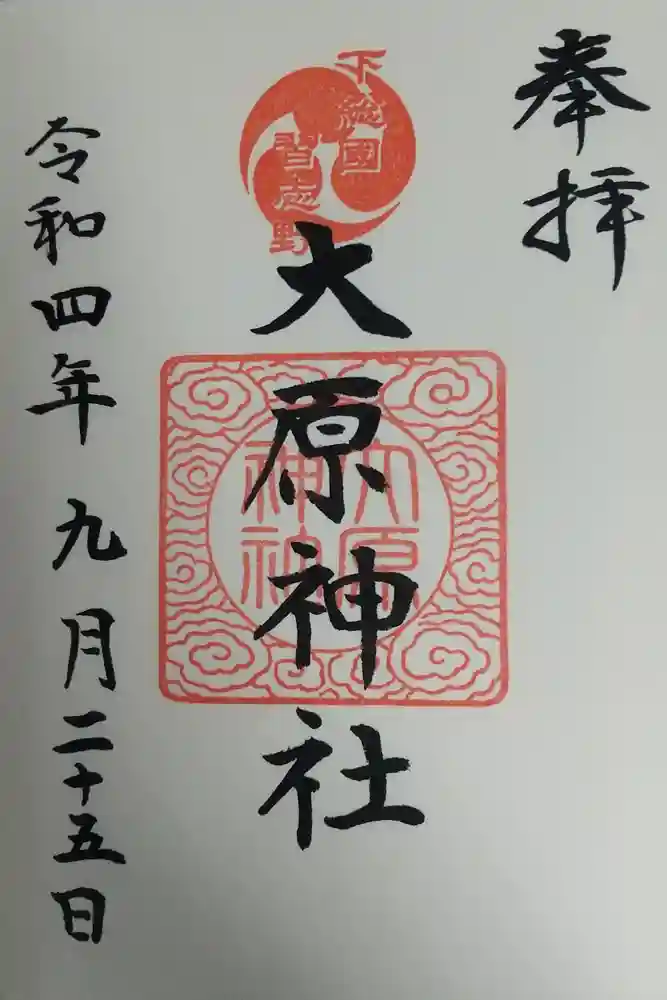 奉拝
下総國
習志野
大原神社
大原
神社
令和四年九月二十五日